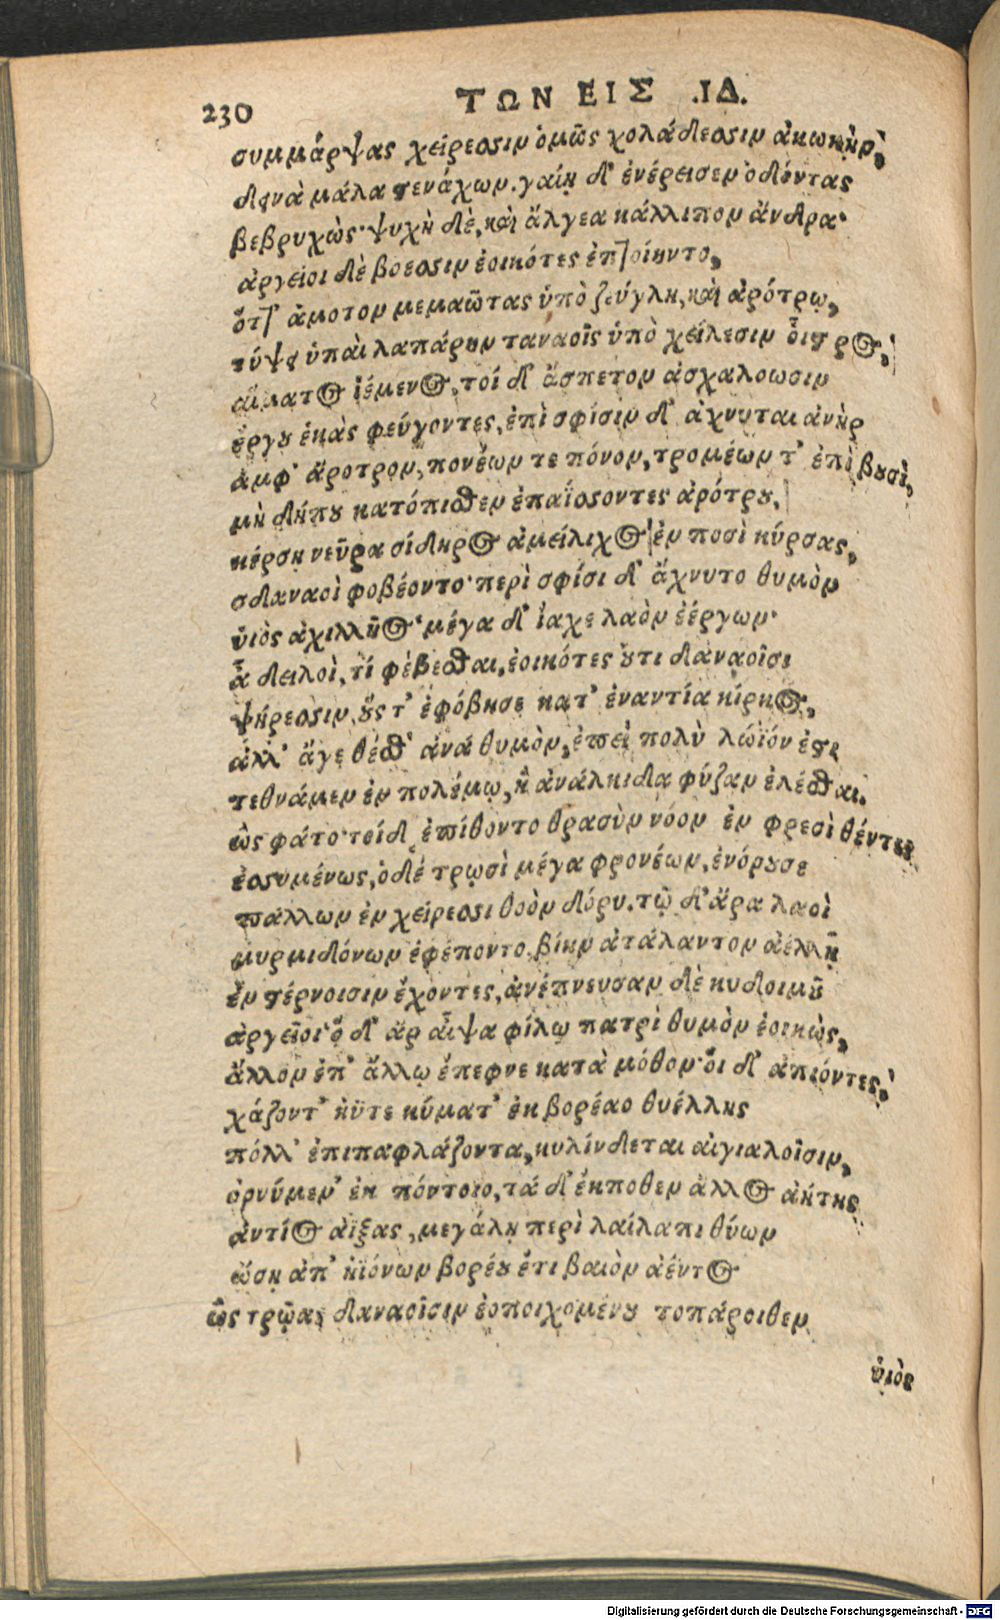 230 ΤΩΝ ΕΙΣ .ΙΔ.
συμμάρψας χείρεσσιν ὁμῶς χολάδεσσιν ἀκωκὴν,
δεινὰ μάλα στενάχων. γαίῃ δ' ἐνέρεισεν ὀδόντας
βεβρυχὼς· ψυχὴ δὲ, καὶ ἄλγεα κάλλιπον ἄνδρα·
ἀργεῖοι δὲ βοεσσιν ἐοικότες ἐπτοίηντο,
ὅστ' ἄμοτον μεμαῶτας ὑπὸ ζεύγλῃ, καὶ ἀρότρῳ,
τύψῃ ὑπαὶ λαπάρην ταναοῖς ὑπὸ χείλεσιν οἶστρος,
αἵματος ἱέμενος, τοί δ' ἄσπετον ἀσχαλοωσιν
ἔργου ἑκὰς φεύγοντες, ἐπὶ σφίσιν δ' ἄχνυται ἀνὴρ
ἀμφ' ἄροτρον, πονέων τε πόνον, τρομέων τ' ἐπὶ βουσὶ,
μὴ δήπου κατόπισθεν ἐπαΐσσοντες ἀρότρου,
κέρσῃ νεῦρα σίδηρος ἀμείλιχος ἐν ποσὶ κύρσας,
ὣς δαναοὶ φοβέοντο· περὶ σφίσι δ' ἄχνυτο θυμὸν
ὑιὸς ἀχιλλῆος· μέγα δ' ἴαχε λαὸν ἐέργων·
ἆ δειλοὶ, τί φέβεσθαι, ἐοικότες οὐτιδανοῖσι
ψήρεσσιν, οὕς τ' ἐφόβησε κατ' ἐναντία κίρκος,
ἀλλ' ἄγε θέσθ' ἀνὰ θυμὸν, ἐπεὶ πολὺ λώϊόν ἐστι
τεθνάμεν ἐν πολέμῳ, ἢ ἀνάλκιδα φύζαν ἑλέσθαι.
ὣς φάτο· τοί δ' ἐπίθοντο θρασὺν νόον ἐν φρεσὶ θέντες
ἐσσυμένως, ὁ δὲ τρῳσὶ μέγα φρονέων, ἐνόρουσε
πάλλων ἐν χείρεσσι θοὸν δόρυ. τῷ δ' ἄρα λαοὶ
μυρμιδόνων ἐφέποντο, βίην ἀτάλαντον ἀέλλῃ
ἐν στέρνοισιν ἔχοντες, ἀνέπνευσαν δὲ κυδοιμοῦ
ἀργεῖοι· ὁ δ' ἄρ αἶψα φίλῳ πατρὶ θυμὸν ἐοικὼς,
ἄλλον ἐπ' ἄλλῳ ἔπεφνε κατὰ μόθον· οἱ δ' ἀπιόντες,
χάζοντ' ἠΰτε κύματ' ἐκ βορέαο θυέλλης
πόλλ' ἐπιπαφλάζοντα, κυλίνδεται αἰγιαλοῖσιν,
ὀρνύμεν' ἐκ πόντοιο, τά δ' ἔκποθεν ἄλλος ἀήτης
ἀντίος ἀΐξας, μεγάλῃ περὶ λαίλαπι θύων
ὤσῃ ἀπ' ἠϊόνων βορέου ἔτι βαιὸν ἀέντος
ὣς τρῶας δαναοῖσιν ἐσποιχομένου τοπάροιθεν
ὑιὸς
Digitalisierung gefördert durch die Deutsche Forschungsgemeinschaft - DFG